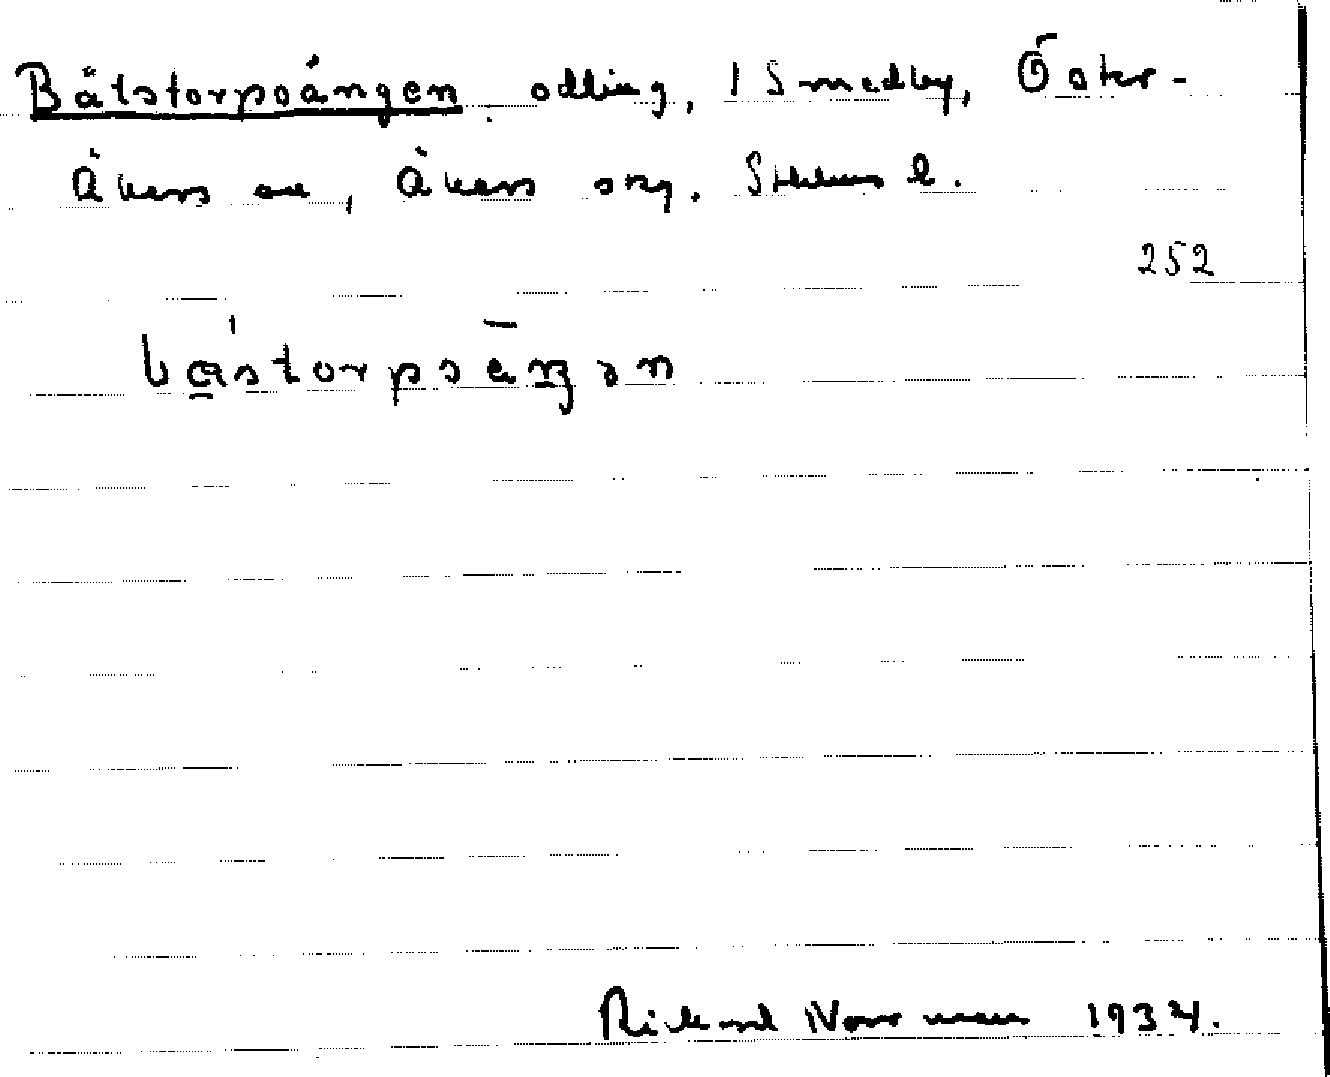 Båtstorpsängen odling, i Smedby, Öster-
Åkers sn, Åkers skg. Sthlms l.
252
Rickard Norrman 1934.